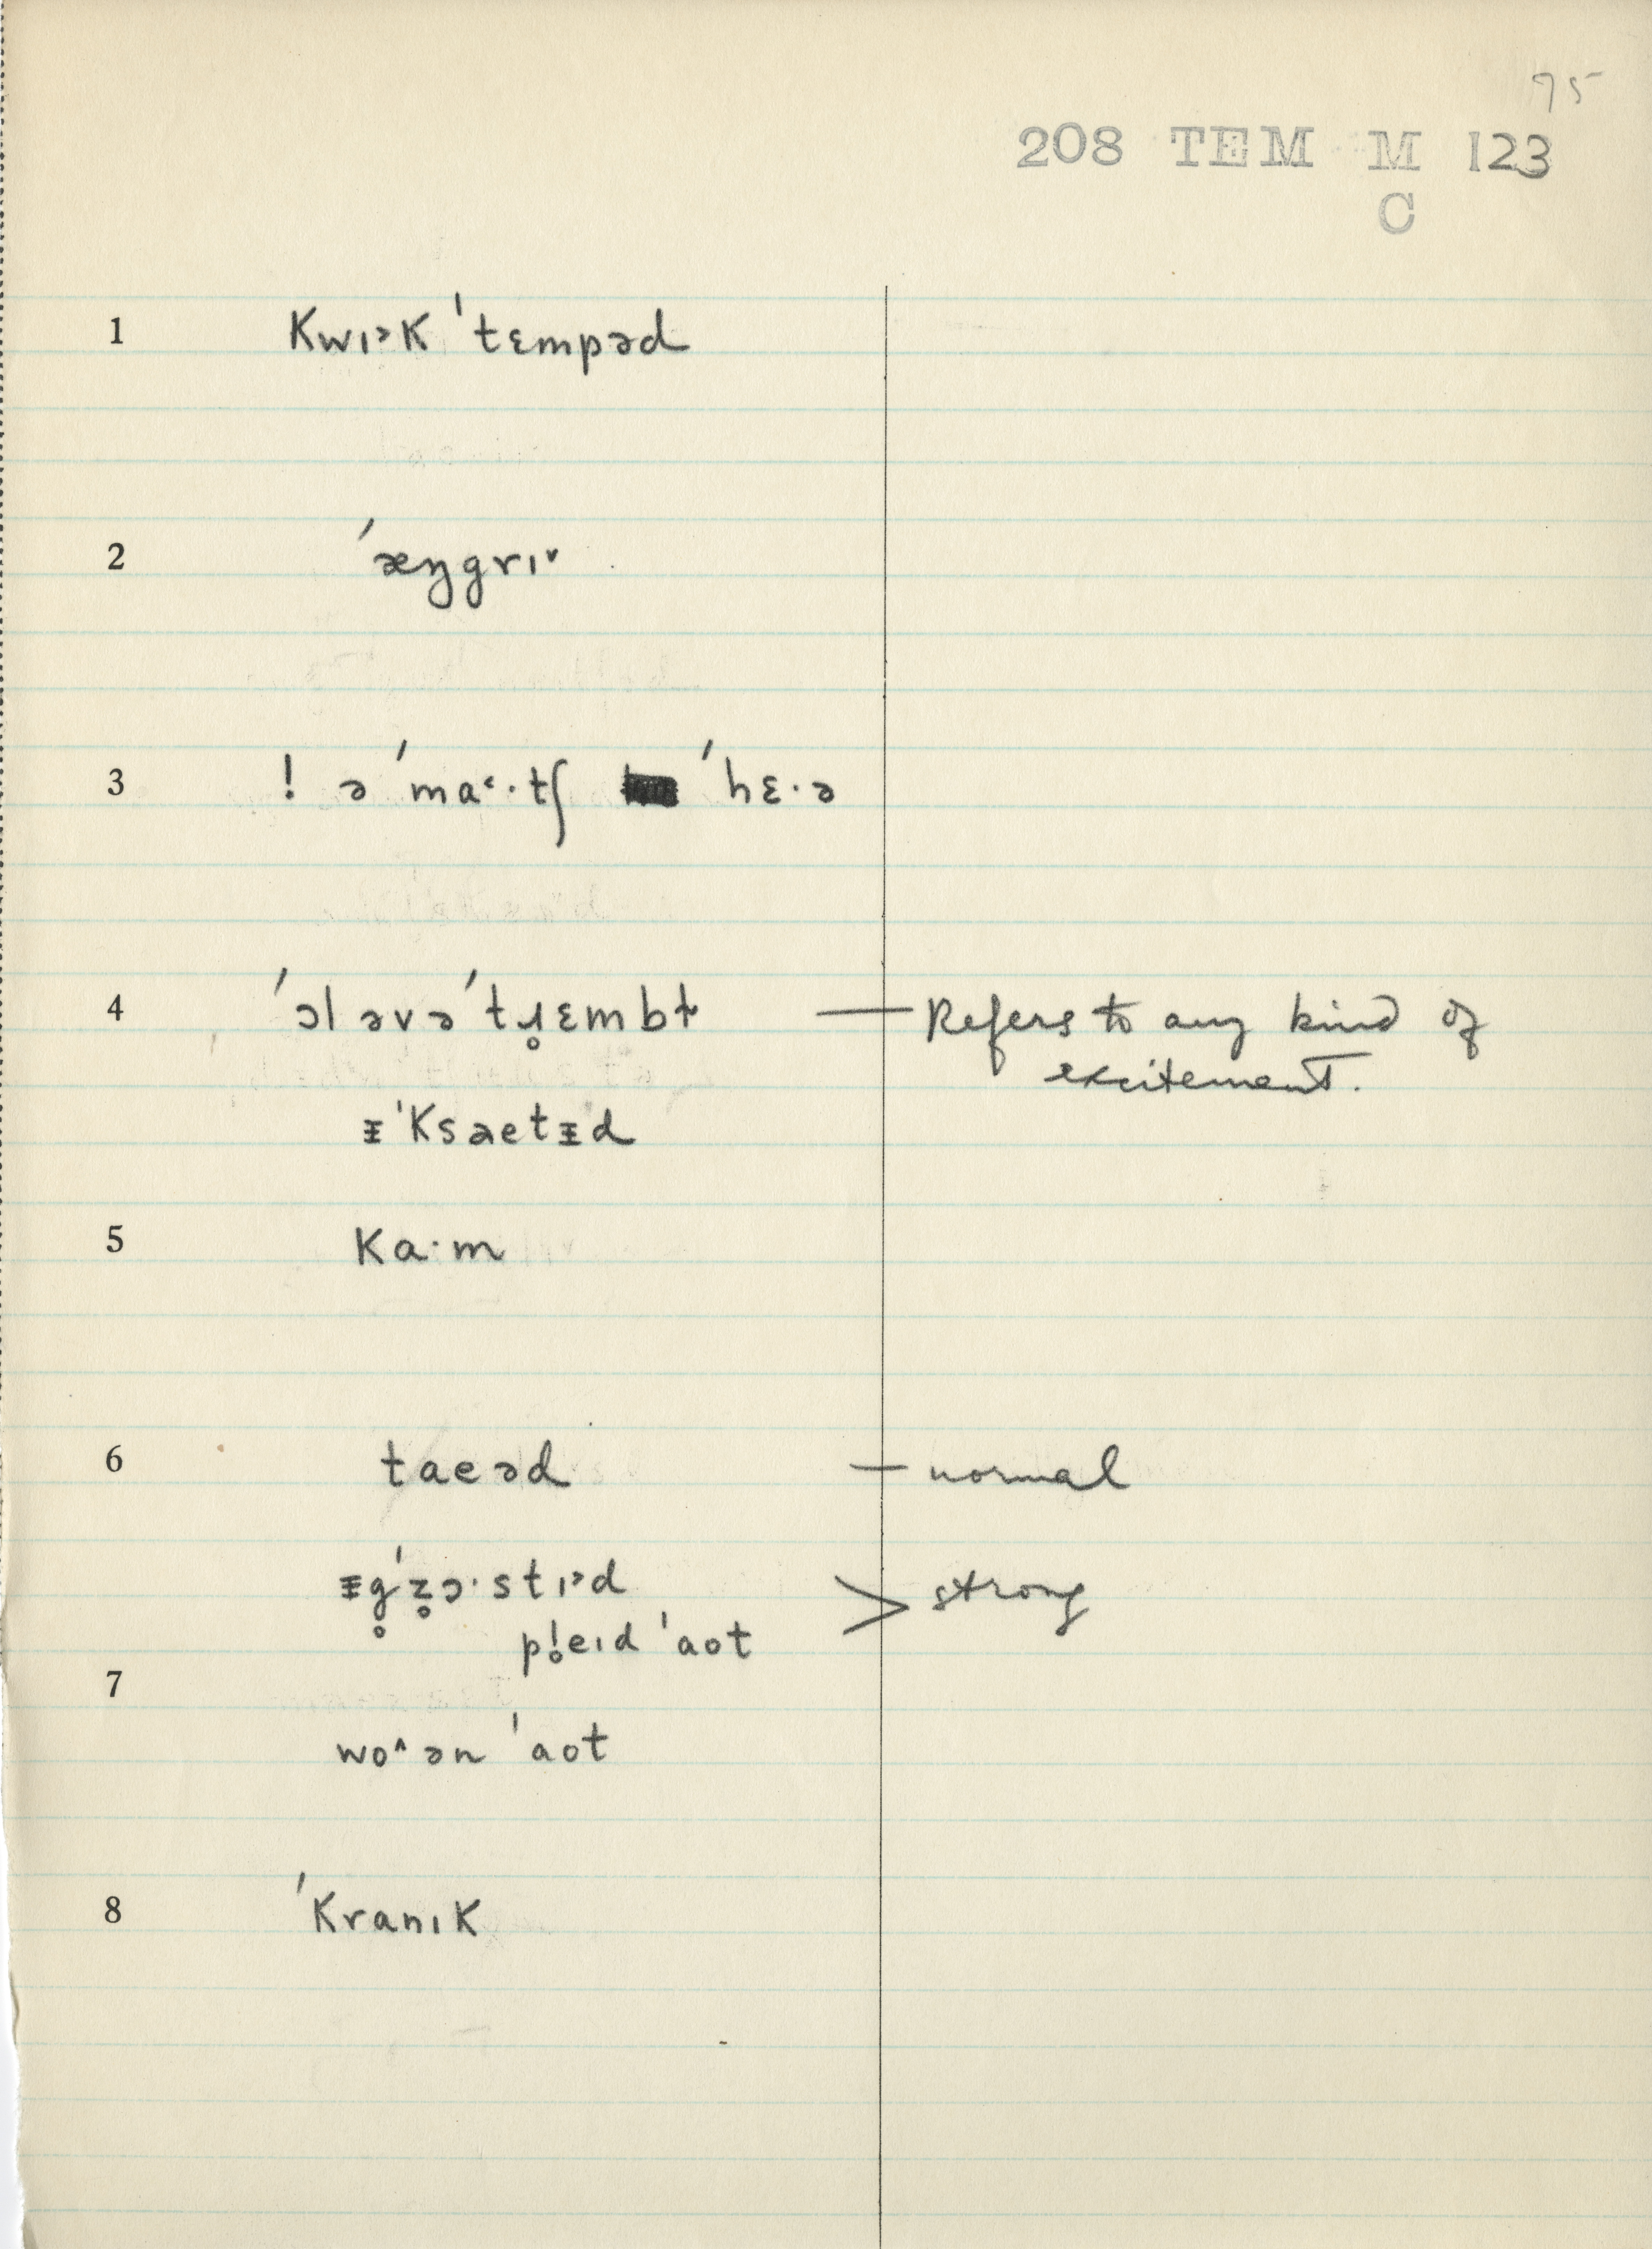 75
208 TEM M 123
C
1 kwɪ˃k ˈtɛmpəd
2 ˈæŋgrɪ˅
3 ! ə ˈma˂·tʃ ˈhɛ·ə
4 ˈɔl əvə ˈtɹ̥ɛmbɫ — Refers to any kind of
excitement.
ᵻˈksaetᵻd
5 ka·m
6 taeəd — normal
ᵻg̥ˈz̥ɔ·stɪ˃d > strong
pl̥eɪd ˈaot
7
wo˄ən ˈaot
8 ˈkranɪk